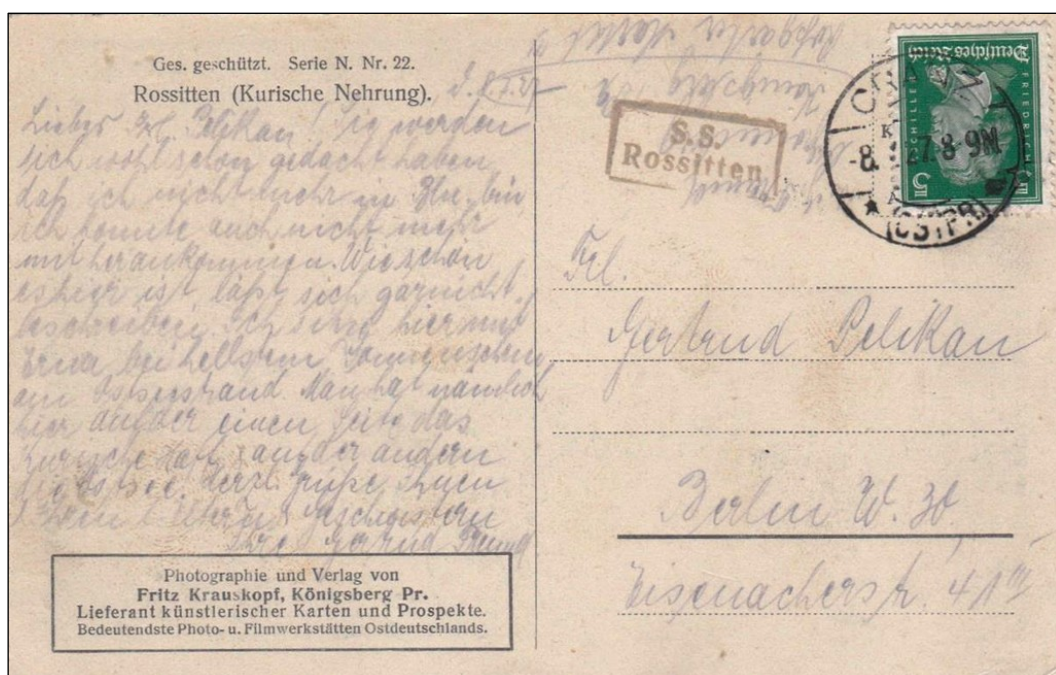 Ges. geschützt. Serie N. Nr. 22.
Rossitten (Kurische Nehrung).
Liebes Frl. Pelikan! Sie werden
sich wohl schon gedacht haben
daß ich nicht mehr in Bln. bin
ich konnte auch nicht mehr
mit herankommen. Wie schön
es hier ist, läßt sich garnicht
beschreiben. Ich sitze hier mit
bei hellstem Sonnenschein
am Ostseestrand. Man hat nämlich
hier auf der einen Seite das
Kurische Haff & auf der andern
die Ostsee. Herzl. Grüße Ihnen
Ihren Eltern & Geschwistern
Ihre Gertrud
Photographie und Verlag von
Fritz Krauskopf, Königsberg Pr.
Lieferant künstlerischer Karten und Prospekte.
Bedeutendste Photo- u. Filmwerkstätten Ostdeutschlands.
Königsberg
S.S.
Rossitten
Deutsches Reich
FRIEDRICH SCHILLER
5 5
CRANZ
-8. 27. 8-9N.
(OSTPR)
Frl.
Gertrud Pelikan
Berlin W. 30
Eisenacherstr. 41